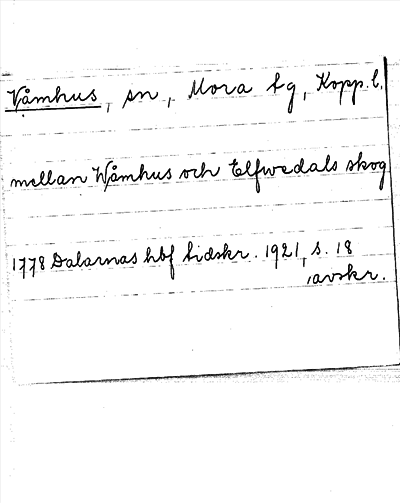 Våmhus, sn, Mora tg, Kopp. l.
mellan Wåmhus och Elfwedals skog
1778 Dalarnas hbf tidskr. 1921, s. 18
avskr.